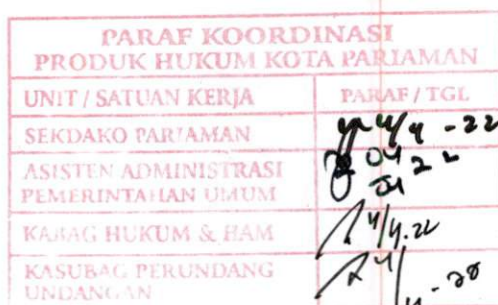 PARAF KOORDINASI
PRODUK HUKUM KOTA PARIAMAN
UNIT / SATUAN KERJA PARAF / TGL
SEKDAKO PARIAMAN 4/4 - 22
ASISTEN ADMINISTRASI
PEMERINTAHAN UMUM
KABAG HUKUM & HAM 4/4.22
KASUBAG PERUNDANG
UNDANGAN